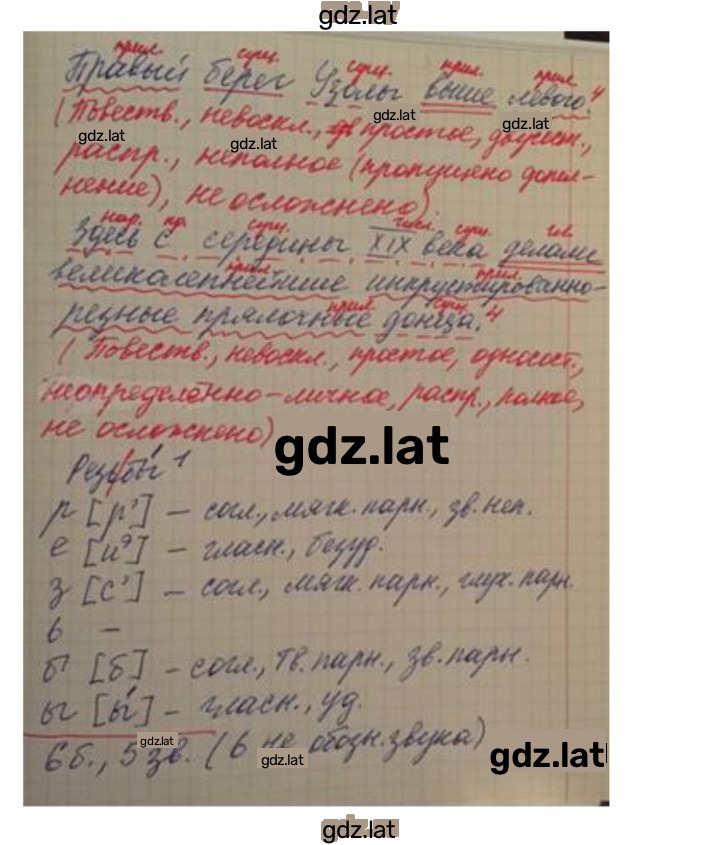 gdz.lat
прил. сущ. сущ. прил. прил.
Правый берег Узолы выше левого.⁴
(Повеств., невоскл., простое, двусост.,
gdz.lat gdz.lat gdz.lat gdz.lat
распр., неполное (пропущено допол-
нение), не осложнено).
нар. пр. сущ. числ. сущ. гл.
Здесь с середины XIX века делали
прил. прил.
великолепнейшие инкрустированно-
прил. сущ.
резные прялочные донца.⁴
(Повеств., невоскл., простое, односост.,
неопределенно-личное, распр., полное,
не осложнено)
gdz.lat
Резьбы́ ¹
р [р'] – согл., мягк. парн., зв. неп.
е [иэ] – гласн., безуд.
з [с'] – согл., мягк. парн., глух. парн.
ь –
б [б] – согл., тв. парн., зв. парн.
ы [ы́] – гласн., уд.
6 б., 5 зв. (ь не обозн. звука)
gdz.lat gdz.lat gdz.lat
gdz.lat